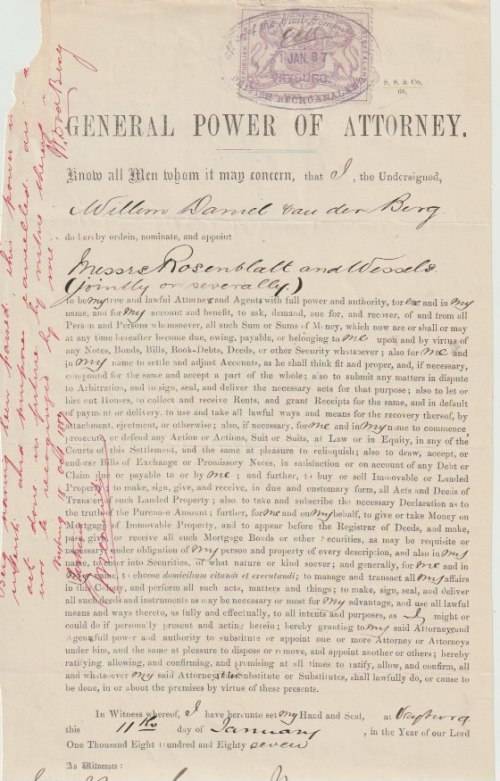 1 JAN 87
VRYBURG
BRITISH BECHUANALAND
S. S. & Co.
GENERAL POWER OF ATTORNEY.
Know all Men whom it may concern, that I, the Undersigned,
Willem Daniel van der Berg
do hereby ordain, nominate, and appoint
Messrs Rosenblatt and Wessels
(jointly or severally)
to be my true and lawful Attorneys and Agents with full power and authority, for me and in my
name, and for my account and benefit, to ask, demand, sue for, and recover, of and from all
Person and Persons whomsoever, all such Sum or Sums of Money, which now are or shall or may
at any time hereafter become due, owing, payable, or belonging to me upon and by virtue of
any Notes, Bonds, Bills, Book-Debts, Deeds, or other Security whatsoever; also for me and
in my name to settle and adjust Accounts, as he shall think fit and proper, and, if necessary,
compound for the same and accept a part of the whole; also to submit any matters in dispute
to Arbitration, and to sign, seal, and deliver the necessary acts for that purpose; also to let or
hire out Homes, to collect and receive Rents, and grant Receipts for the same, and in default
of payment or delivery, to use and take all lawful ways and means for the recovery thereof, by
Attachment, ejectment, or otherwise; also, if necessary, for me and in my name to commence
prosecute or defend any Action or Actions, Suit or Suits, at Law or in Equity, in any of the
Courts of this Settlement, and the same at pleasure to relinquish; also to draw, accept, or
endorse Bills of Exchange or Promissory Notes, in satisfaction or on account of any Debt or
Claim due or payable to or by me; and further, to buy or sell Immovable or Landed
Property, and to make, sign, give, and receive, in due and customary form, all Acts and Deeds of
Transfer of such Landed Property; also to take and subscribe the necessary Declaration as to
the truth of the Purchase Amount; further, for me and on my behalf, to give or take Money on
Mortgage of Immovable Property, and to appear before the Registrar of Deeds, and make,
pass, give, or receive all such Mortgage Bonds or other Securities, as may be requisite or
necessary under obligation of my person and property of every description, and also in my
name, to enter into Securities, of what nature or kind soever; and generally, for me and in
my name, to choose domicilium citandi et executandi; to manage and transact all my affairs
in this Colony, and perform all such acts, matters and things; to make, sign, seal, and deliver
all such deeds and instruments as may be necessary or most for my advantage, and use all lawful
means and ways thereto, as fully and effectually, to all intents and purposes, as I might or
could do if personally present and acting herein; hereby granting to my said Attorneys and
Agents full power and authority to substitute or appoint one or more Attorney or Attorneys
under him, and the same at pleasure to dispose or remove, and appoint another or others; hereby
ratifying, allowing, and confirming, and promising at all times to ratify, allow, and confirm, all
and whatsoever my said Attorneys the Substitute or Substitutes, shall lawfully do, or cause to
be done, in or about the premises by virtue of these presents.
In Witness whereof, I have hereunto set my Hand and Seal, at Vryburg
this 11th day of January, in the Year of our Lord
One Thousand Eight Hundred and Eighty seven
As Witnesses:
this power is
cancelled
done in future by virtue
W. v. d. Berg